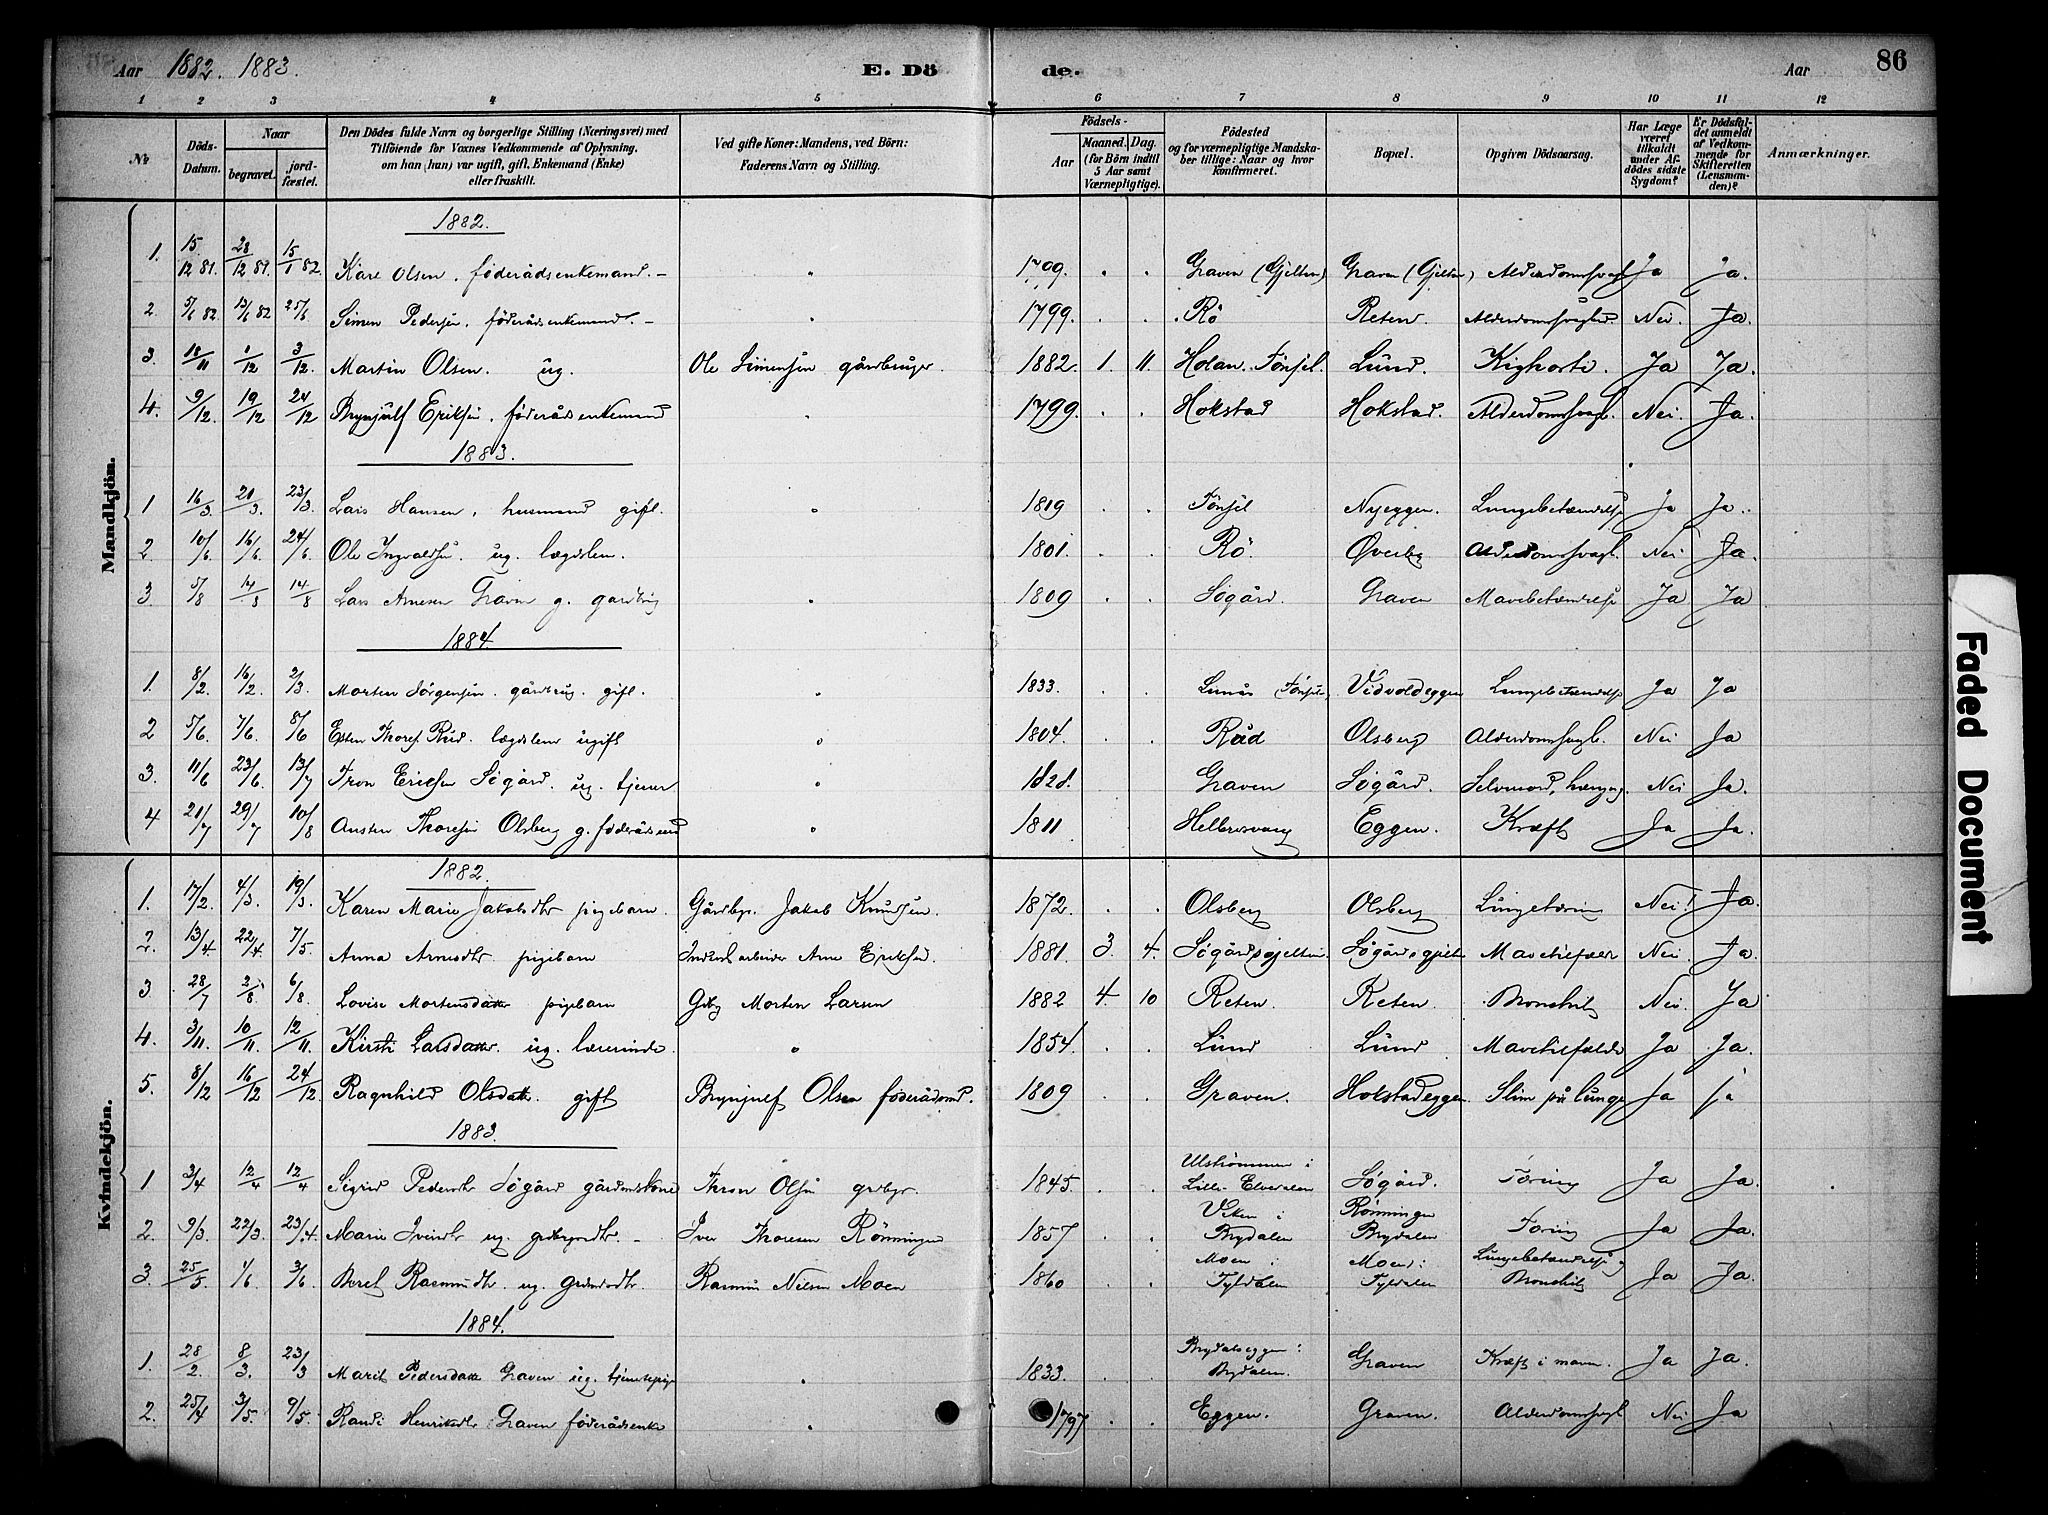 Aar 1882. 1883. E. Dö de. Aar 86
1 2 3 4 5 6 7 8 9 10 11 12
No
Döds-Datum.
Naar
begravet.
jord-fæstet.
Den Dödes fulde Navn og borgerlige Stilling (Næringsvei) med
Tilföiende for Voxnes Vedkommende af Oplysning,
om han (hun) var ugift, gift, Enkemand (Enke)
eller fraskilt.
Ved gifte Koner: Mandens, ved Börn:
Faderens Navn og Stilling.
Födsels-
Aar
Maaned. Dag.
(for Börn indtil
5 Aar samt
Værnepligtige).
Födested
og for værnepligtige Mandska-
ber tillige: Naar og hvor
konfirmeret.
Bopæl.
Opgiven Dödsaarsag.
Har Læge
været
tilkaldt
under Af-
dödes sidste
Sygdom?
Er Dödsfal-
det anmeldt
af Vedkom-
mende for
Skifteretten
(Lensman-
den)?
Anmærkninger.
Mandkjön.
1882.
1. 15/12 81. 28/12 81. 15/1 82. Kåre Olsen. föderådsenkemand. - " 1799. . . Graven (Gjelten) Graven (Gjelten) Alderdomssvagh Ja Ja.
2. 5/6 82. 13/6 82 25/6 Simen Pedersen, föderådsenkemand. - " 1799. . . Rö Reten. Alderdomssvaghed. Nei. Ja.
3. 18/11 1/12 3/12. Martin Olsen. ug. Ole Simensen gårdbruger. 1882. 1. 11. Holan. Tönset. Lund. Kighoste. Ja Ja.
4. 9/12. 19/12 24/12 Brynjulf Eriksen. föderådsenkemand " 1799. . . Hokstad Hokstad. Alderdomssvagh. Nei. Ja.
1883.
1 16/3. 21/3. 23/3. Lars Hansen, husmand gift. " 1819 . . Tönset Nyeggen. Lungebetændelse Ja Ja.
2 10/6. 16/6. 24/6. Ole Ingvaldsen. ug. lægdslem. 1801. . . Rö Øverby Alderdomssvagh. Nei Ja.
3. 5/8 14/8 14/8 Lars Arnesen Graven g. gårdbrug " 1809 . . Søgård. Graven Mavebetændelse Ja Ja
1884.
1. 8/2. 16/2. 2/3. Morten Jörgensen. gårdbrug. gift. " 1833. . . (Tönset) Vidvoldeggen Lungebetændelse Ja Ja
2 5/6. 7/6. 8/6 Esten Thores. Röd. lægdslem ugift " 1804. . . Röd Olsberg Alderdomssvagh. Nei Ja
3. 11/6 23/6. 13/7 Tron Ericsen Søgård. ug. tjener " 1828. Graven Søgård. Selvmord, hængng. Nei Ja.
4 21/7 29/7 10/8 Austen Thoresen Olsberg g. föderådsmd " 1811 Eggen. Kræft Ja Ja.
Kvindekjön.
1882.
1. 17/2. 4/3. 19/3. Karen Marie Jakobsdtr pigebarn. Gårdbgr. Jakob Knudsen. 1872. . . Olsberg Olsberg Lungetæring Nei! Ja.
2. 13/4. 22/4. 7/5 Anna Arnesdtr pigebarn arbeider Arne Eriksen. 1881. 3. 4. Søgårdsgjelten Søgårdsgjelt. Mavetilfæld Nei. Ja.
3 28/7 2/8 6/8 Lovise Mortensdatter pigebarn Gdbg Morten Larsen 1882 4. 10 Reten. Reten. Bronchit Nei Ja
4. 3/11. 10/11 12/11. Kirsti Larsdatter. ug. lærerinde. " 1854. . . Lund Lund Mavetilfælde Ja Ja.
5. 8/12 16/12 24/12. Ragnhild Olsdatt. gift Brynjulf Olsen föderådsmd. 1809 . . Graven. Hokstadeggen. Slim på lunge Ja ja
1883.
1 3/4 12/4 12/4 Sigrid Pedersdtr Søgård gårdmskone Thron Olsen grdbgr. 1845. . . Ulströmmen i Lille-Elvedalen Søgård. Tæring Ja Ja.
2. 9/3. 22/3. 23/4. Marie Iversdtr ug. grdbrgrdtr. - Iver Thoresen Rönningen 1857 . . Viken i Brydalen Rönningen Brydalen Tæring Ja Ja.
3. 25/5 1/6 3/6. Beret Rasmusdtr. ug. grdmdsdtr. Rasmus Nilsen Moen 1860 . . Moen i Tyldalen Moen i Tyldalen Lungebetændelse og Bronchit Ja Ja.
1884.
1. 28/2. 8/3. 23/3 Marit Pedersdatt Graven ug. tjenestepige " 1833. . . Brydalseggen i Brydalen. Graven Kræft i maven. Ja Ja.
2. 25/4 3/5. 9/5. Randi Henriksdtr Graven föderådsenke " 1797 . . Eggen. Graven. Alderdomssvagh Nei Ja
Faded Document